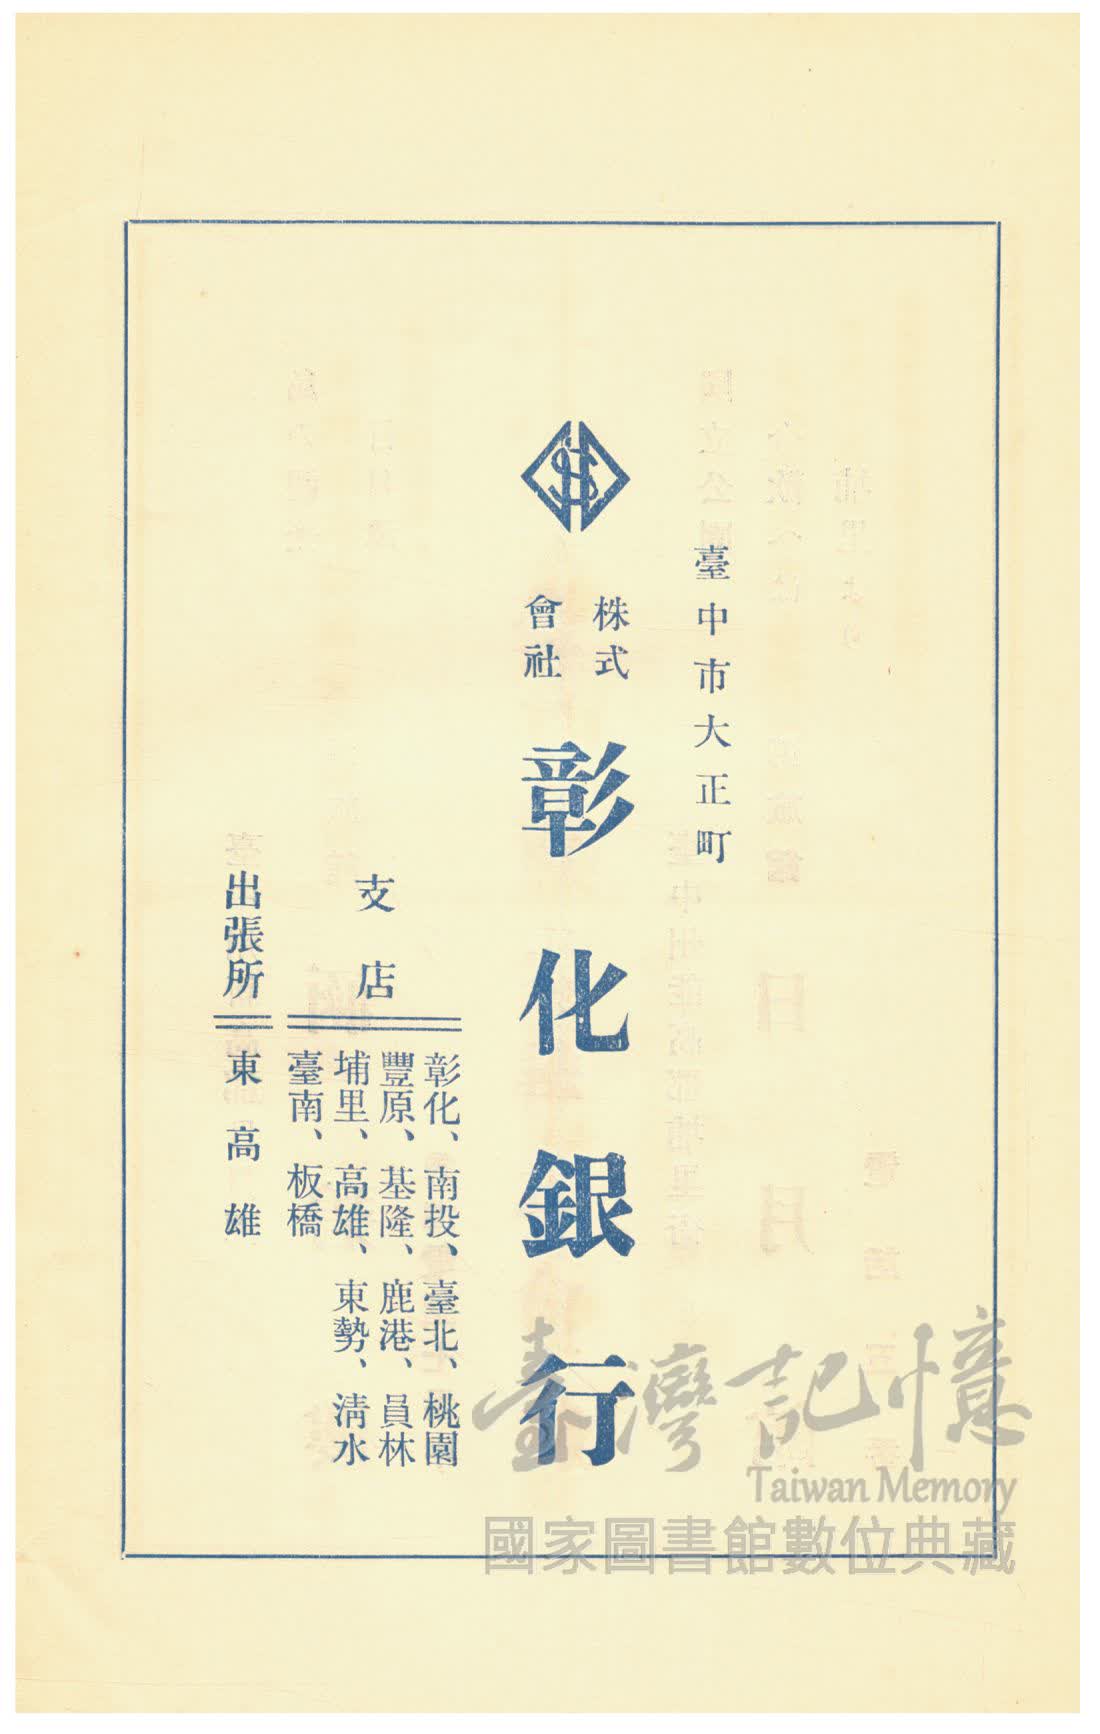 臺中市大正町
株式會社
彰化銀行
支店
彰化、南投、臺北、桃園
豐原、基隆、鹿港、員林
埔里、高雄、東勢、淸水
臺南、板橋
出張所
東高雄
臺灣記憶
Taiwan Memory
國家圖書館數位典藏